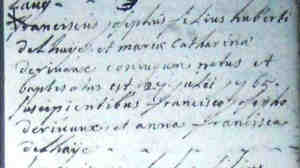 franciscus josephus filius huberti
delhaije et mariæ Catharina
derivaux conjugum natus et
baptisatus est 27 julii 1765
suscipientibus francisco josepho
derivaux et anna francisca
delhaije